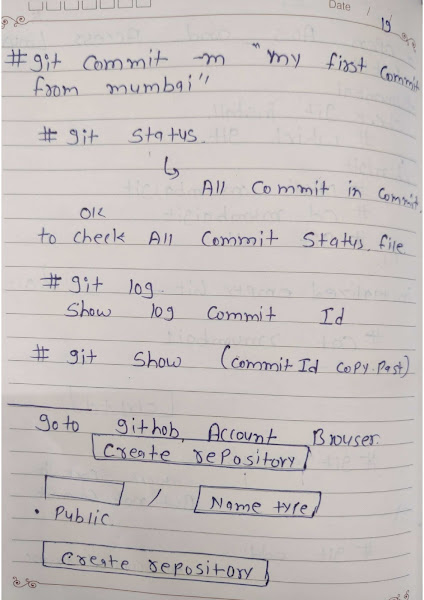 Date / 19
# git commit -m "my first commit
from mumbai"
# git status.
↳ All commit in commit.
OK
to check All commit status file
# git log
show log commit Id
# git show (commit Id copy.past)
goto githob Account Browser.
Create repository
/ Name type
• Public.
Create repository